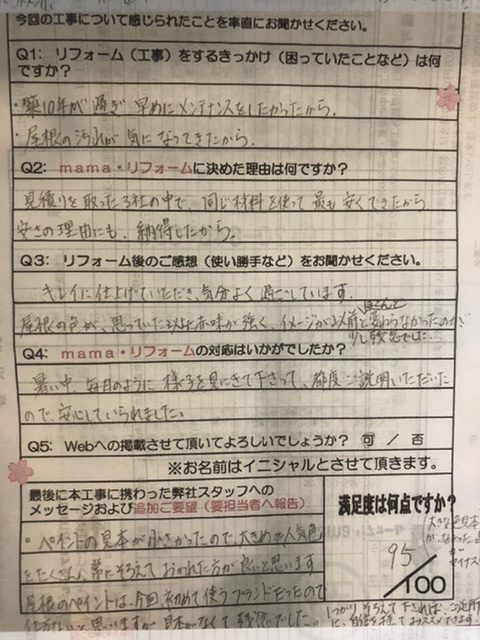 今回の工事について感じられたことを率直にお聞かせください。
Q1: リフォーム（工事）をするきっかけ（困っていたことなど）は何
ですか？
・築10年が過ぎ 早めにメンテナンスをしたかったから。
・屋根の汚れが気になってきたから。
Q2: mama・リフォームに決めた理由は何ですか？
見積りを取った3社の中で、同じ材料を使って最も安くできたから
安さの理由にも、納得したから。
Q3: リフォーム後のご感想（使い勝手など）をお聞かせください。
キレイに仕上げていただき、気分よく過ごしています。
ほとんど
屋根の色が、思っていた以上に赤味が強く、イメージが以前と変わらなかったのが
少し残念でした。
Q4: mama・リフォームの対応はいかがでしたか？
暑い中、毎日のように様子を見にきて下さって、都度ご説明いただいた
ので、安心していられました。
Q5: Webへの掲載させて頂いてよろしいでしょうか？ 可 / 否
※お名前はイニシャルとさせて頂きます。
最後に本工事に携わった弊社スタッフへの
メッセージおよび追加ご要望（要担当者へ報告）
・ペイントの見本が小さかったので、大きめで人気色
をたくさん常にそろえておかれた方が良いと思います
屋根のペイントは、今回初めて使うブランドだったので
仕方ないと思いますが 見本がなくて残念でした。
満足度は何点ですか？
大きな見本
がなかった
95/100
しっかりそろえて下されば、ご近所
に自信を持っておススメできます。